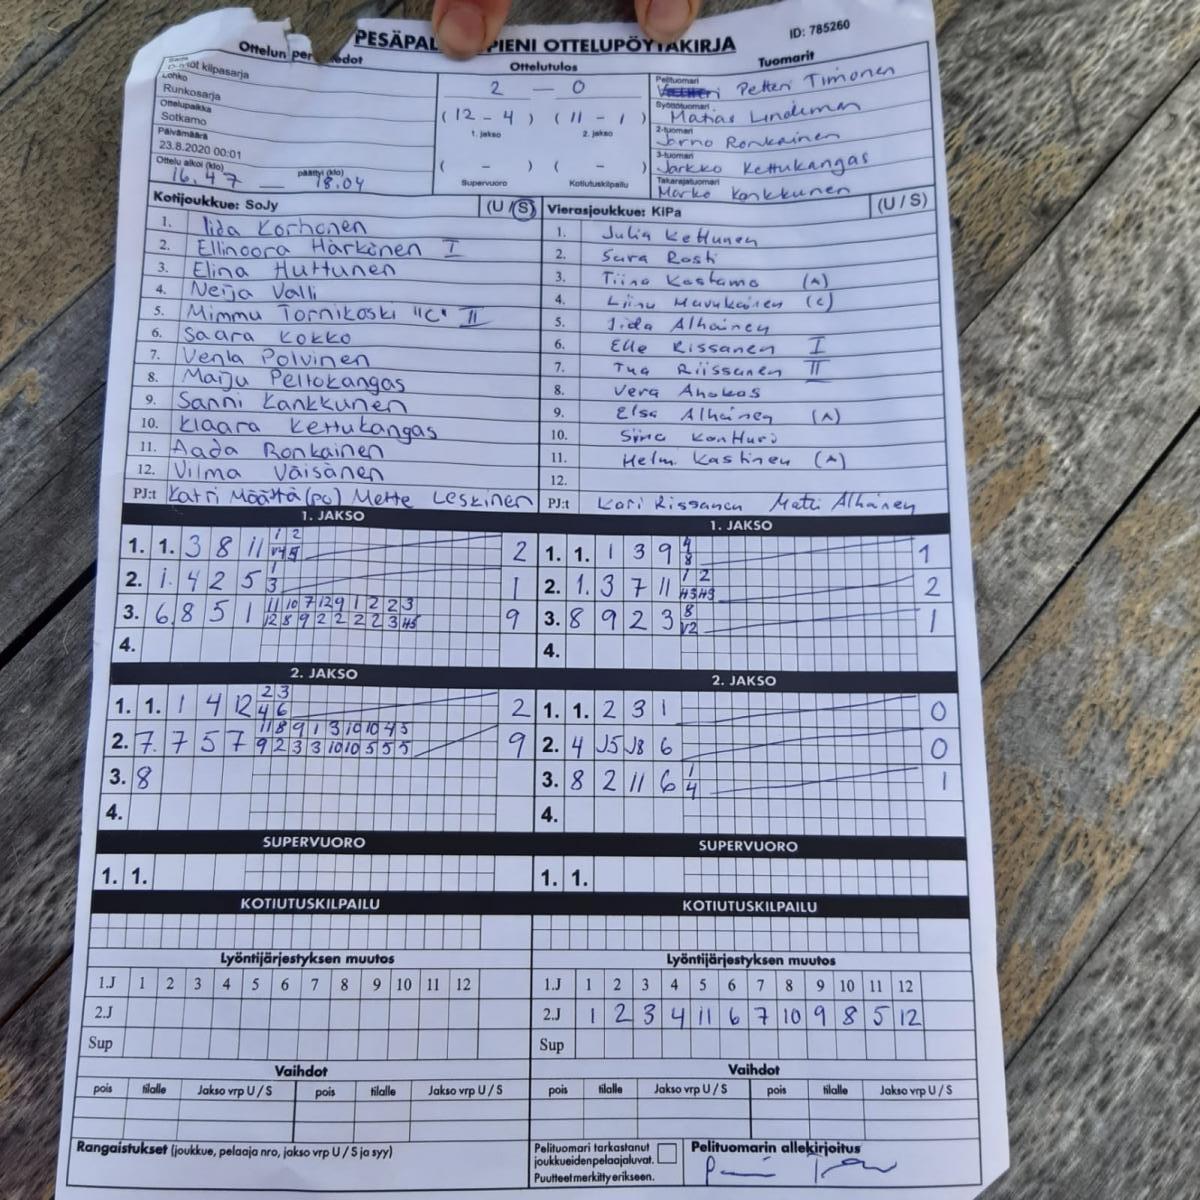 PESÄPAL PIENI OTTELUPÖYTÄKIRJA
ID: 785260
Ottelun per edot
Ottelutulos
Tuomarit
kilpasarja
Lohko
Runkosarja
Ottelupaikka
Sotkamo
Päivämäärä
23.8.2020 00:01
Ottelu alkoi (klo) päättyi (klo)
16.47 — 18.04
2 — 0
(12 - 4) (11 - 1)
1. jakso 2. jakso
( - ) ( - )
Supervuoro Kotiutuskilpailu
Pelituomari
Petteri Timonen
Syöttötuomari
Matias Lindeman
2-tuomari
Jorno Ronkainen
3-tuomari
Jarkko Kettukangas
Takarajatuomari
Marko Kankkunen
Kotijoukkue: SoJy (U / S)
1. Iida Korhonen
2. Ellinoora Härkönen I
3. Elina Huttunen
4. Neija Valli
5. Mimmu Tornikoski "C" II
6. Saara Kokko
7. Venla Polvinen
8. Maija Peltokangas
9. Sanni Kankkunen
10. Klaara Kettukangas
11. Aada Ronkainen
12. Vilma Väisänen
PJ:t Katri Määttä (pc) Mette Leskinen
Vierasjoukkue: KiPa (U / S)
1. Julia Kettunen
2. Sara Rosti
3. Tiina Kostamo (A)
4. Liinu Mavukainen (C)
5. Iida Alhainen
6. Elle Rissanen I
7. Tua Riissanen II
8. Vera Ahokas
9. Elsa Alhainen (A)
10. Siina Konttori
11. Helmi Kastinen (A)
12.
PJ:t Kari Rissanen Matti Alhainen
1. JAKSO
1. 1. 3 8 11 1 2 2
2. 1. 4 2 5 1 3 1
3. 6 8 5 1 11 10 7 12 9 1 2 2 3 9
12 8 9 2 2 2 2 2 3 45
4.
1. JAKSO
1. 1. 1 3 9 4 8 1
2. 1. 3 7 11 1 2 2
3. 8 9 2 3 8 1
4.
2. JAKSO
1. 1. 1 4 12 2 3 2
4 6
2. 7. 7 5 7 11 8 9 1 3 10 10 4 5 9
9 2 3 3 10 10 5 5 5
3. 8
4.
2. JAKSO
1. 1. 2 3 1 0
2. 4 J5 J8 6 0
3. 8 2 11 6 1 4 1
4.
SUPERVUORO
1. 1.
SUPERVUORO
1. 1.
KOTIUTUSKILPAILU
KOTIUTUSKILPAILU
Lyöntijärjestyksen muutos
1.J 1 2 3 4 5 6 7 8 9 10 11 12
2.J
Sup
Lyöntijärjestyksen muutos
1.J 1 2 3 4 5 6 7 8 9 10 11 12
2.J 1 2 3 4 11 6 7 10 9 8 5 12
Sup
Vaihdot
pois tilalle Jakso vrp U / S pois tilalle Jakso vrp U / S
Vaihdot
pois tilalle Jakso vrp U / S pois tilalle Jakso vrp U / S
Rangaistukset (joukkue, pelaaja nro, jakso vrp U / S ja syy)
Pelituomari tarkastanut
joukkueiden pelaajaluvat.
Puutteet merkitty erikseen.
Pelituomarin allekirjoitus